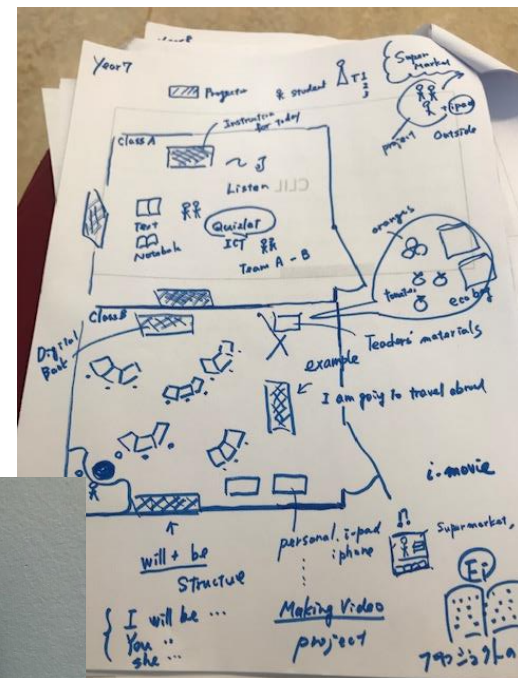 Year 7
Projector
student
T 1 2 3
Super Market
project
+ ipad
Outside
Class A
Instruction for Today
Listen
CLIL
Text
Notebook
Quizlet
ICT
Team A - B
oranges
tomatos
eco bag
Class B
Digital Book
Teachers' materials
example
I am going to travel abroad
i-movie
will + be
Structure
personal i-pad
iphone
Supermarket,
I will be ...
You "
She ...
Making Video
project